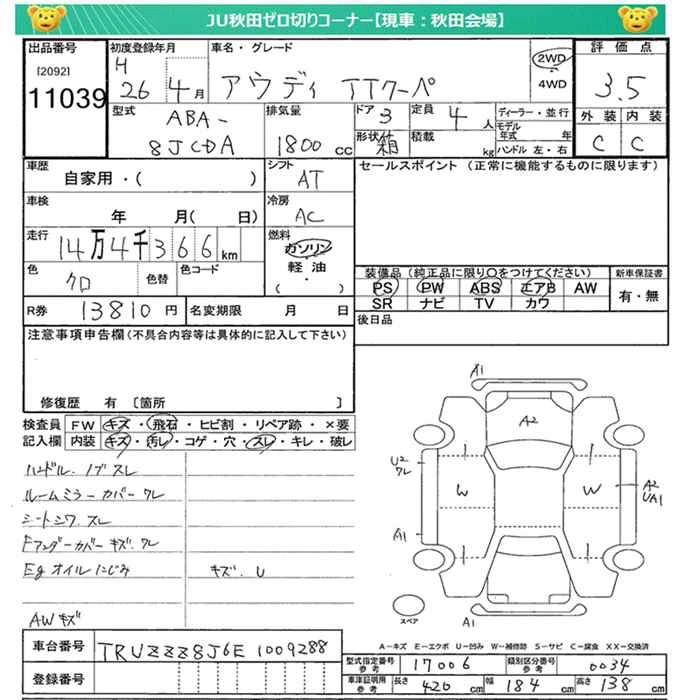 JU秋田ゼロ切りコーナー【現車：秋田会場】
出品番号
[2092]
11039
初度登録年月
H
26 4月
車名・グレード
アウディ TTクーペ
2WD
4WD
評価点
3.5
外装 内装
C C
型式
ABA-
8JCDA
排気量
1800 cc
ドア 3
定員 4 人
形状 箱
積載 kg
ディーラー・並行
モデル年式 年
ハンドル 左・右
車歴
自家用・( )
シフト
AT
セールスポイント（正常に機能するものに限ります）
車検
年 月( 日)
冷房
AC
走行
14万4千366km
燃料
ガソリン
軽油
( ・ )
色
クロ
色替
色コード
装備品（純正品に限り○をつけてください）
新車保証書
PS PW ABS エアB AW
有・無
SR ナビ TV カワ
R券 13810円
名変期限 月 日
後日品
注意事項申告欄（不具合内容等は具体的に記入して下さい）
修復歴 有 〔箇所 〕
検査員
記入欄
FW キズ・飛石・ヒビ割・リペア跡・×要
内装 キズ・汚レ・コゲ・穴・スレ・キレ・破レ
ハンドル.ノブ スレ
ルームミラーカバー ワレ
シートシワ.スレ
Fアンダーカバー キズ.ワレ
Egオイルにじみ
キズ.U
AWキズ
A1
A2
U2
ワレ
W
W
A2
UA1
A1
A1
スペア
A-キズ E-エクボ U-凹み W-補修跡 S-サビ C-腐食 XX-交換済
車台番号 TRUZZZ8J6E1009288
登録番号
型式指定番号 参考 17006
類別区分番号 参考 0034
車庫証明用 参考 長さ 420 cm 幅 184 cm 高さ 138 cm